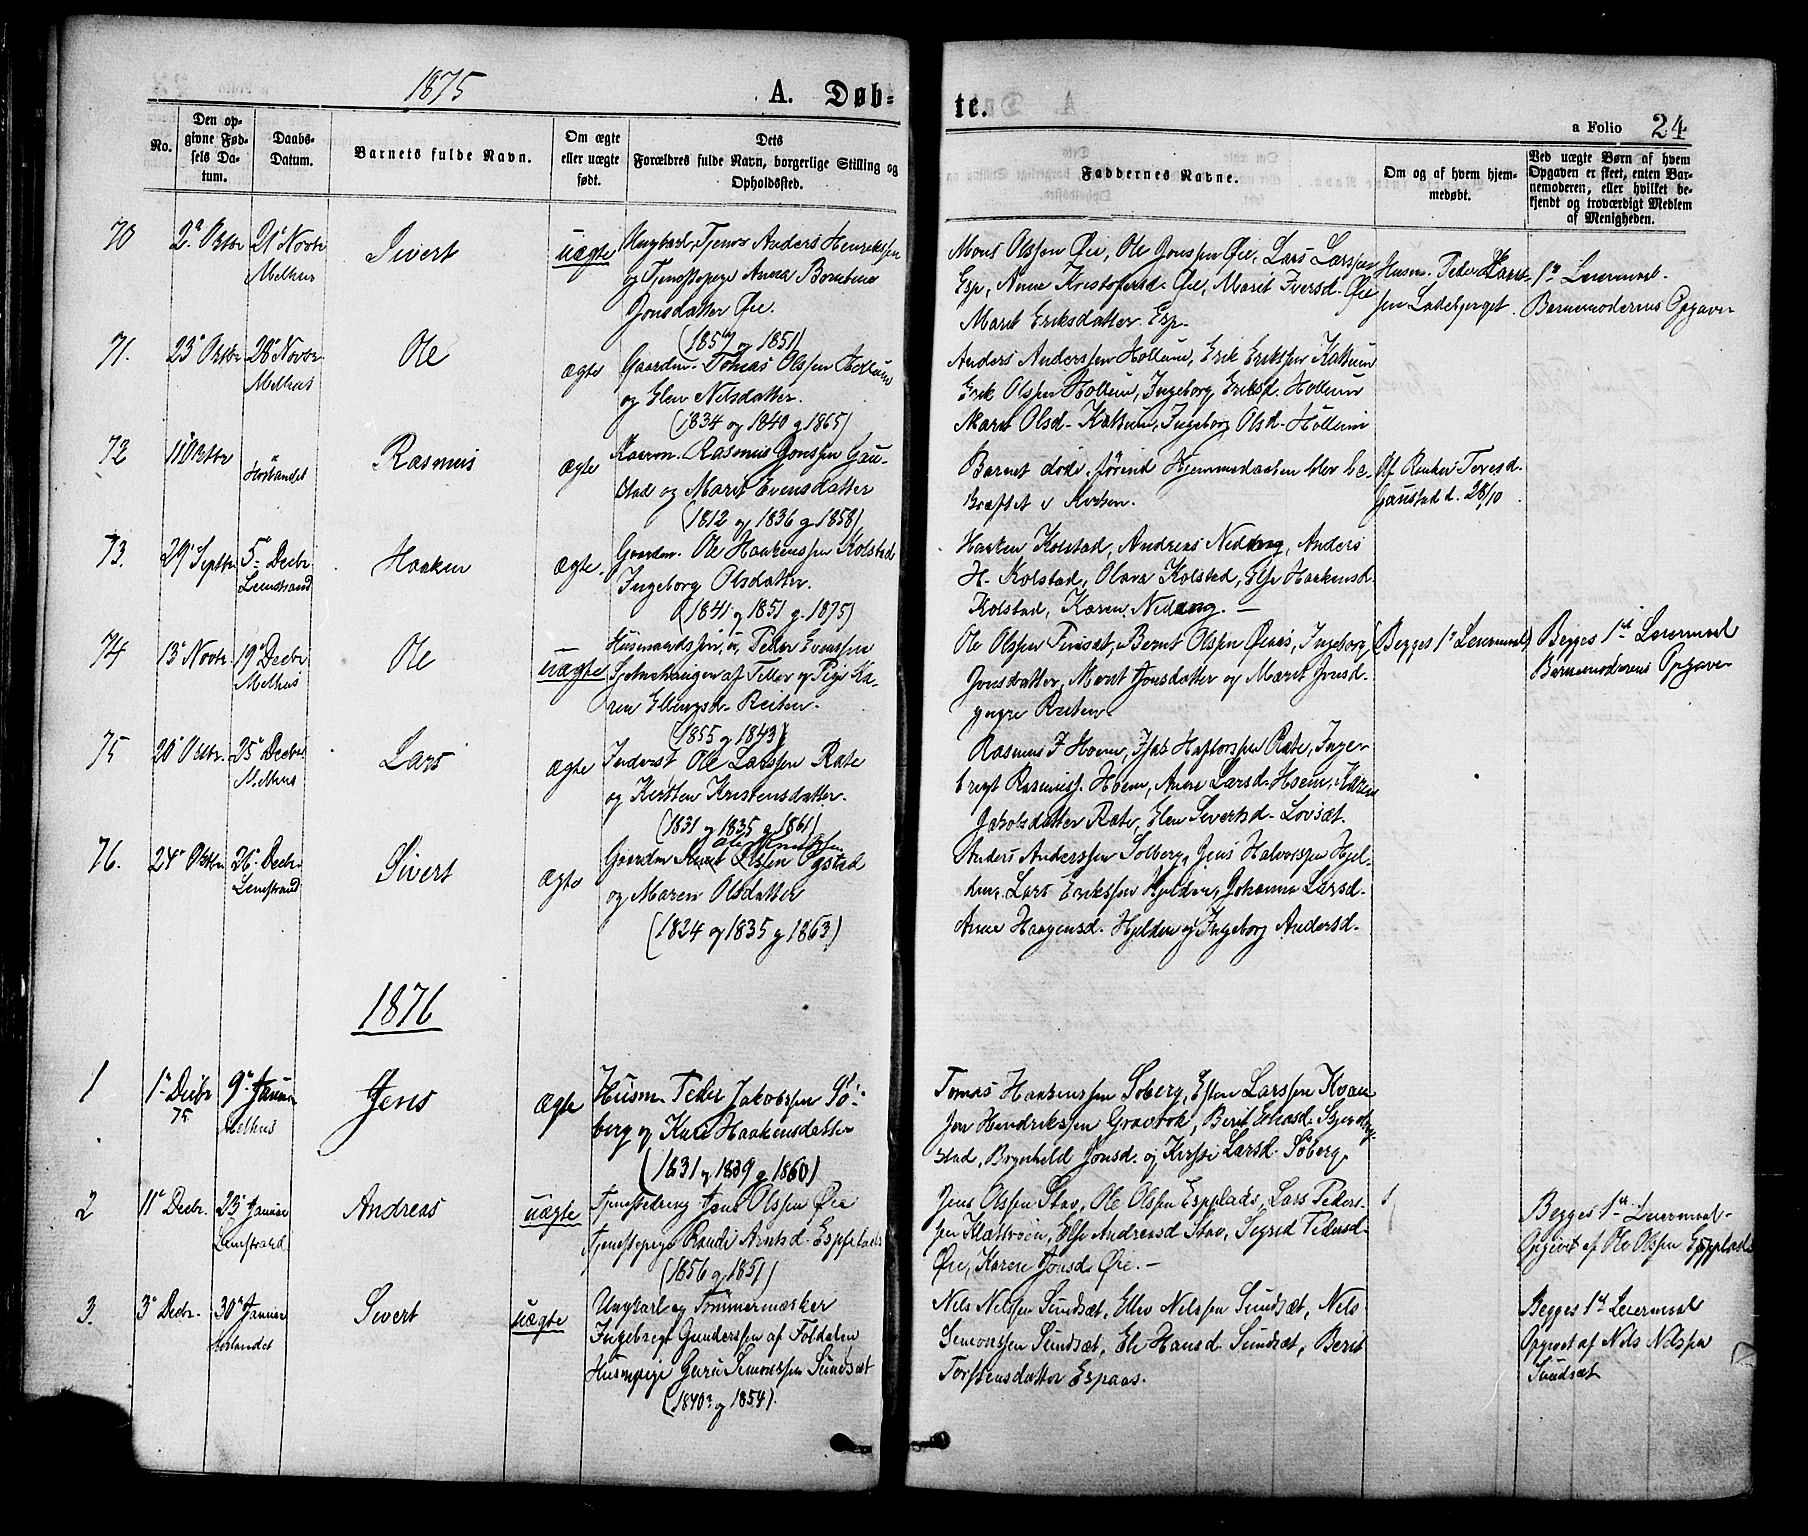 1875
A. Døb-
te.
a Folio 24
No.
Den op-
givne Fød-
sels Da-
tum.
Daabs-
Datum.
Barnets fulde Navn.
Om ægte
eller uægte
født.
Dets
Forældres fulde Navn, borgerlige Stilling og
Opholdssted.
Faddernes Navne.
Om og af hvem hjem-
medøbt.
Ved uægte Børn af hvem
Opgaven er skeet, enten Bar-
nemoderen, eller hvilket be-
kjendt og troværdigt Medlem
af Menigheden.
70
2' Oktbr
21' Novbr
Melhus
Sivert
uægte
Ungkarl, Tjener Anders Henrikssen
og Tjenstepige Anna
Jonsdatter Øie.
(1857 og 1851)
Mons Olssen Øie, Ole Jonssen Øie, Lars Larssen
Esp, Kristofersd. Øie, Marit Iversd. Øie
Marit Eriksdatter Esp.
Husm. Peder
sen Ladebjerget.
1ste Leiermaal.
Barnemoderens Opgave
71.
23' Oktbr
28' Novbr
Melhus
Ole
ægte
Gaardm. Tomas Olssen Hollum
og Elen Nilsdatter.
(1834 og 1840 g. 1865)
Anders Anderssen Hollum, Erik Erikssen Kattum
Erik Olssen Hollum, Ingeborg Eriksd. Hollum
Marit Olsd. Kattum, Ingeborg Olsd. Hollum
72
11' Oktbr
"
Høilandet
Rasmus
ægte
Rasmus Jonssen Gau-
stad og Marit Evensdatter
(1812 og 1836 g. 1858)
Barnet døde, førend Hjemmedaaben blev be-
kræftet i Kirken.
Af
Gaustad d. 28/10
73.
29' Septbr
5' Decbr
Leinstrand
Haaken
ægte.
Gaardm. Ole Haakenssen Kolstad
Ingeborg Olsdatter.
(1841 og 1851 g. 1875)
Haaken Kolstad, Andreas Nideng, Anders
H. Kolstad, Olava Kolstad, Else Haakensd.
Kolstad, Karen Nideng. —
74
13' Novbr
19' Decbr
Melhus
Ole
uægte
Peder Evenssen
af Tiller og Pige Ka-
ren Ellingsd. Reiten.
(1855 og 1843)
Ole Olssen Bernt Olssen Øiaas, Ingeborg
Jonsdatter, Marit Jonsdatter og Marit Jonsd.
yngre Reiten
(Begges 1ste Leiermaal)
Begges 1ste Leiermaal
Barnemoderens Opgave
75
20' Oktbr.
25' Decbr
Melhus
Lars
ægte
Inderst Ole Larssen Rate
og Kirsten Kristensdatter.
(1831 og 1835 g. 1861)
Rasmus J Hoem, Haftorssen Rate, Inge-
brigt Rasmuss. Hoem, Anne Larsd. Hoem, Karen
Jakobsdatter Rate, Elen Sivertsd. Lovset.
76.
24' Oktbr
26' Decbr
Leinstrand
Sivert
ægte
Gaardm Olssen Ogstad
og Maren Olsdatter
(1824 og 1835 g 1863)
Anders Anderssen Solberg, Jens Halvorssen Hjel-
den, Lars Erikssen Hjelden, Johanna Larsd.
Anne Haagensd. Hjelden og Ingeborg Andersd.
1876
1
1' Decbr
75
9' Januar
Melhus
Jens
ægte
Husm. Peder Jakobssen Sø-
berg og Haakensdatter
(1831 og 1839 g. 1860)
Tomas Haakenssen Søberg, Esten Larssen Kvaa
Jon Hendrikssen Gravrok, Berit
stad, Brynhild Jonsd. og Kirsti Larsd. Søberg.
2
11' Decbr.
23' Januar
Leinstrand
Andreas
uægte
Tjenstedreng Jens Olssen Øie
Tjenstepige Randi Arntsd. Espplads
(1856 og 1851)
Jens Olssen Stav, Ole Olssen Espplads, Lars Peders-
sen Else Andreasd Stav, Sigrid Pedersd.
Øie, Karen Jonsd. Øie. —
Begges 1ste Leiermaal.
Opgivet af Ole Olssen Espplads
3.
3' Decbr.
30' Januar
Høilandet
Sivert
uægte
Ungkarl og Tømmermærker
Ingebrigt Gunderssen af Foldalen
Huspige Guru Simonssen Sundsæt
(1840? og 1854).
Nils Nilssen Sundsæt, Ellev Nilssen Sundsæt, Nils
Simonssen Sundsæt, Eli Hansd. Sundsæt, Berit
Torstensdatter Espaas.
Begges 1ste Leiermaal
Opgivet af Nils Nilssen
Sundsæt